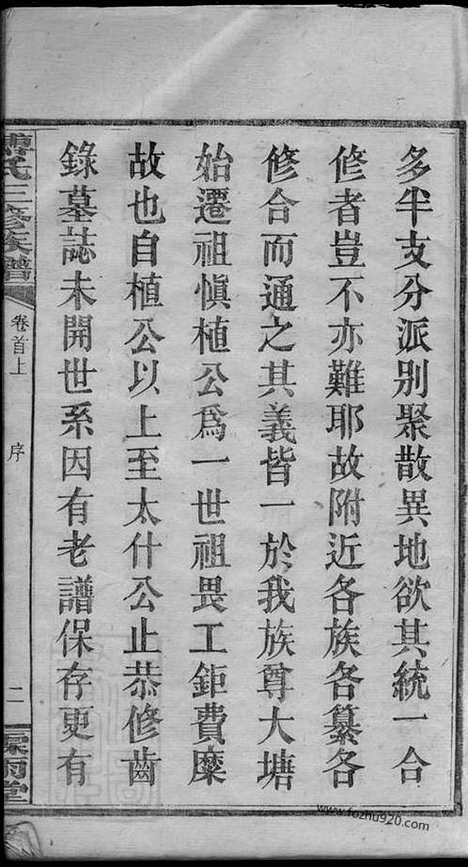 多半支分派別聚散異地欲其統一合
修者豈不亦難耶故附近各族各纂各
修合而通之其義皆一於我族尊大塘
始遷祖愼植公爲一世祖畏工鉅費糜
故也自植公以上至太什公止恭修齒
錄墓誌未開世系因有老譜保存更有
氏三修族譜
卷首上
序
二
雨堂
www.fozhu920.com